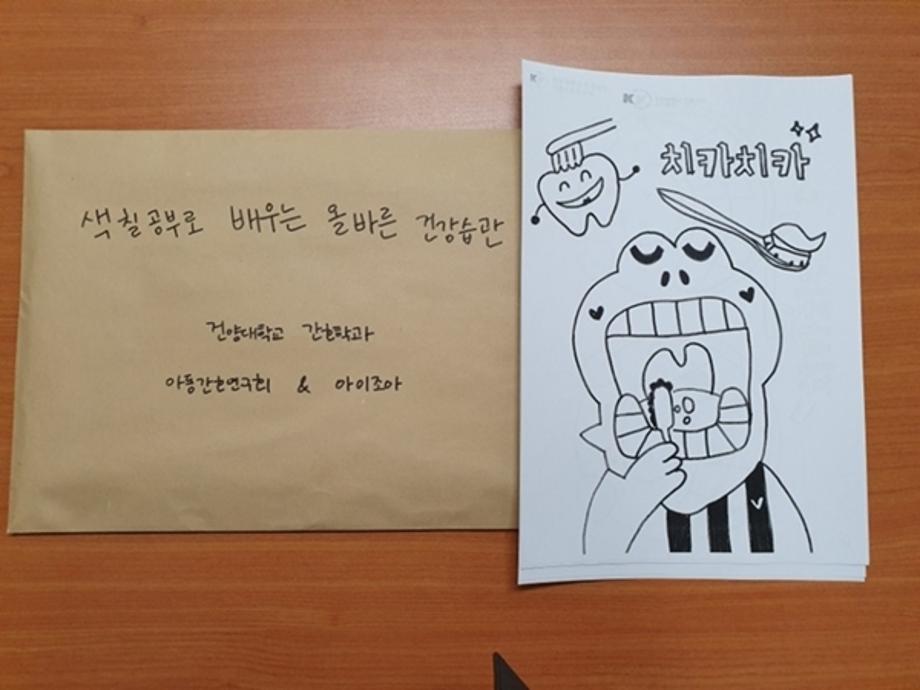 색칠공부로 배우는 올바른 건강습관
건양대학교 간호학과
아동간호연구회 & 아이조아
치카치카